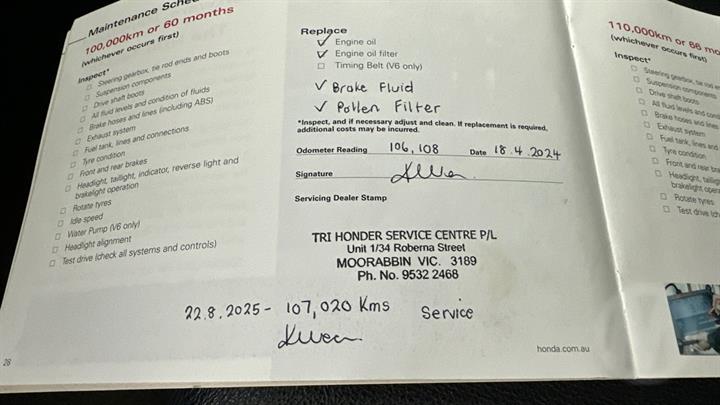 Maintenance Sche
100,000km or 60 months
(whichever occurs first)
Inspect*
Steering gearbox, tie rod ends and boots
Suspension components
Drive shaft boots
All fluid levels and condition of fluids
Brake hoses and lines (including ABS)
Exhaust system
Fuel tank, lines and connections
Tyre condition
Front and rear brakes
Headlight, taillight, indicator, reverse light and
brakelight operation
Rotate tyres
Idle speed
Water Pump (V6 only)
Headlight alignment
Test drive (check all systems and controls)
28
Replace
✓ Engine oil
✓ Engine oil filter
Timing Belt (V6 only)
✓ Brake Fluid
✓ Pollen Filter
*Inspect, and if necessary adjust and clean. If replacement is required,
additional costs may be incurred.
Odometer Reading 106,108 Date 18.4.2024
Signature
Servicing Dealer Stamp
TRI HONDER SERVICE CENTRE P/L
Unit 1/34 Roberna Street
MOORABBIN VIC. 3189
Ph. No. 9532 2468
22.8.2025 - 107,020 Kms Service
honda.com.au
110,000km or 66 mo
(whichever occurs first)
Inspect*
Steering gearbox, tie rod en
Suspension components
Drive shaft boots
All fluid levels and cond
Brake hoses and lines
Exhaust system
Fuel tank, lines and
Tyre condition
Front and rear bra
Headlight, tailligh
brakelight opera
Rotate tyres
Test drive (ch